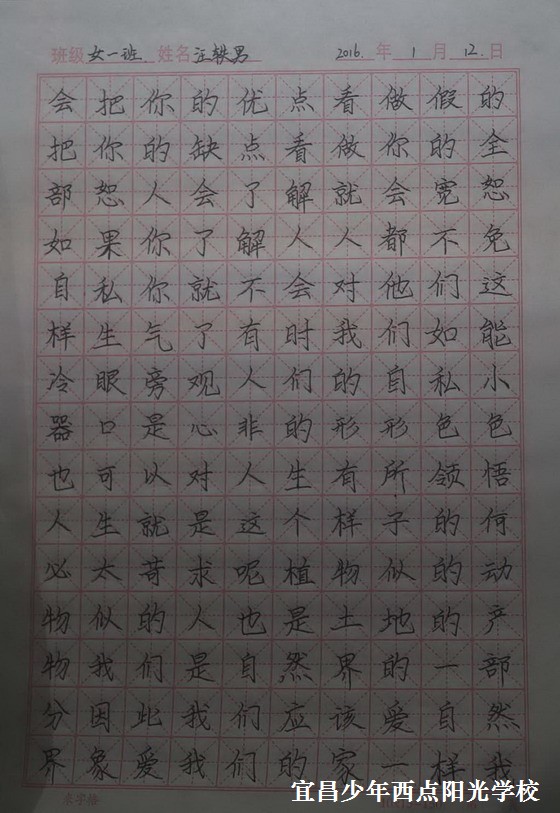 班级 女一班 姓名 汪轶男 2016. 年 1 月 12. 日
会把你的优点看做假的
把你的缺点看做你的全
部恕人会了解就会宽恕
如果你了解人人都不免
自私你就不会对他们这
样生气了有时我们如能
冷眼旁观人们的自私小
器口是心非的形形色色
也可以对人生有所领悟
人生就是这个样子的何
必太苛求呢植物似的动
物似的人也是土地的产
物我们是自然界的一部
分因此我们应该爱自然
界象爱我们的家一样我
宜昌少年西点阳光学校